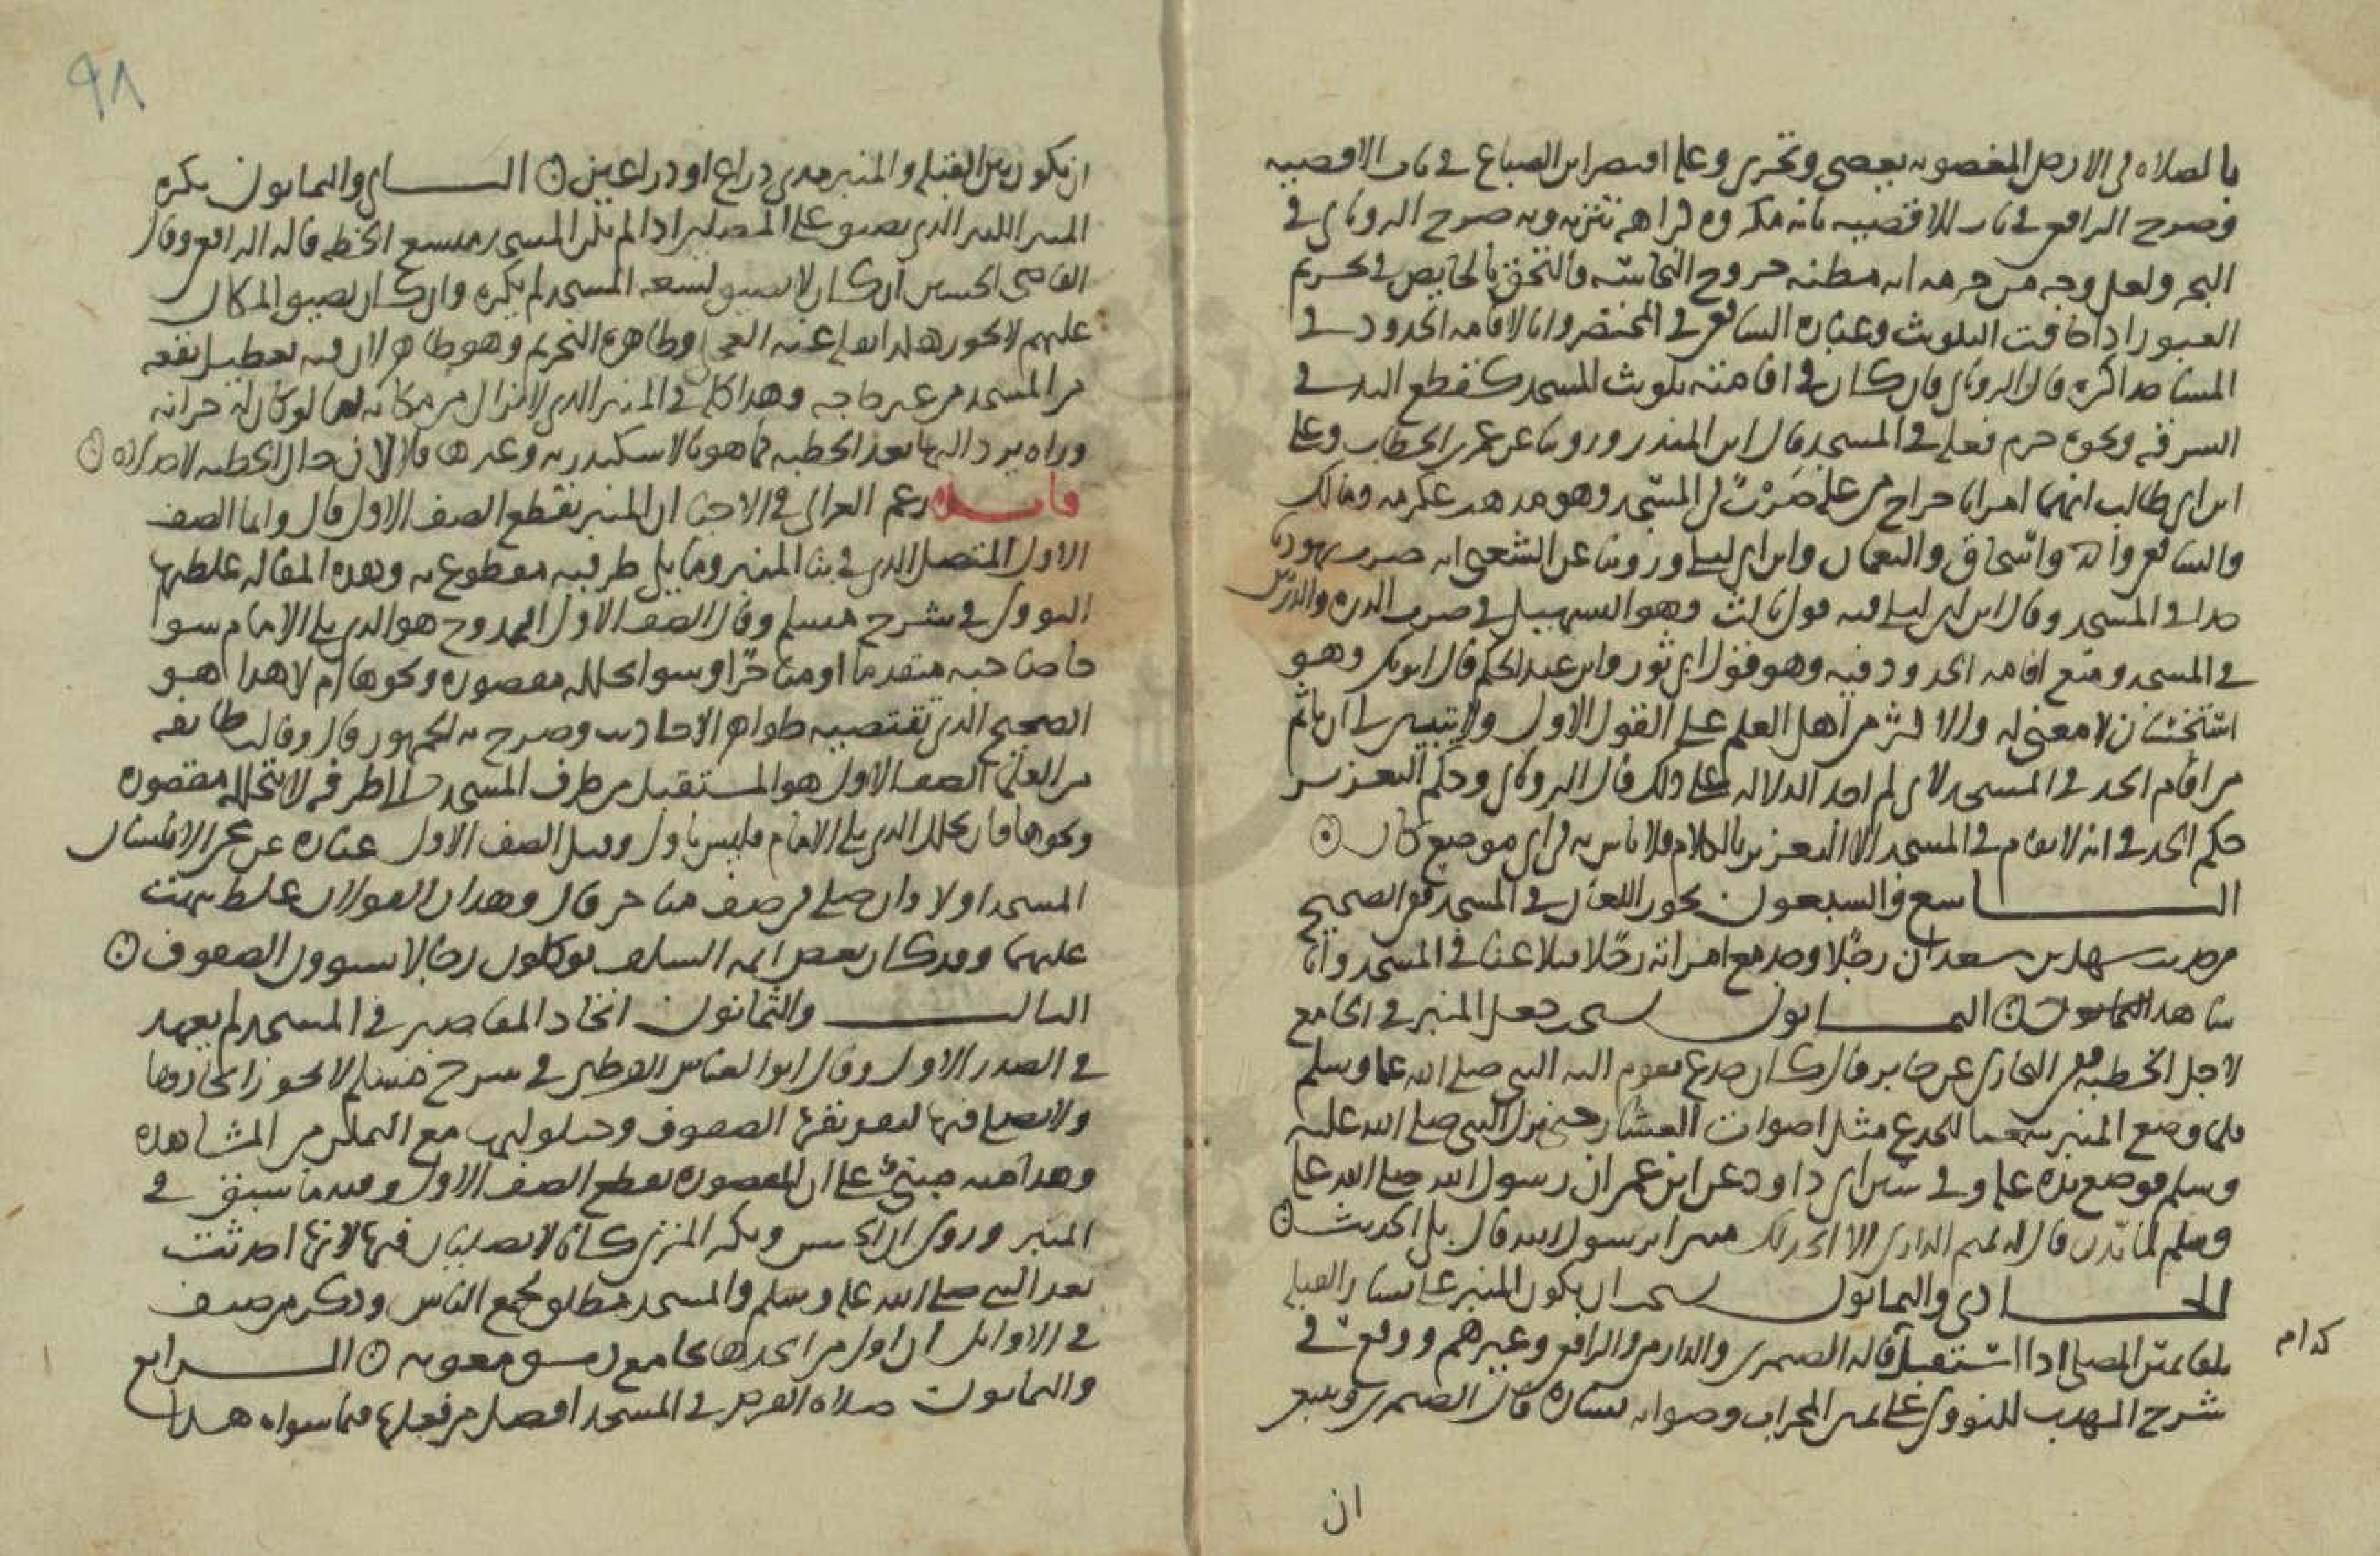 بالصلاه في الارض المغصوبه يعصي وتجزي وعليه اقتصر ابن الصباغ في باب الاقضيه
وصرح الرافعي في باب الاقضيه بانه مكروه كراهه تنزيه وبه صرح الروياني في
البحر ولعل وجه من حرمه انه مظنه خروج النجاسه فالتحق بالحايض في تحريم
العبور اذا خافت التلويث وعباره الشافعي في المختصر وانا لاقامه الحدود في
المساجد اكره قال الروياني فان كان في اقامته تلويث المسجد كقطع اليد في
السرقه ونحوه حرم فعله في المسجد قال ابن المنذر وروينا عن عمر بن الخطاب وعلي
ابن ابي طالب انهما امرا باخراج من عليه ضرب من المسجد وهو مذهب عكرمه ومالك
والشافعي واحمد واسحاق والنعمان وابن ابي ليلى وروينا عن الشعبي انه ضرب يهوديا
حدا في المسجد وقال ابن ابي ليلى فيه قول ثالث وهو التسهيل في ضرب الدره والدرتين
في المسجد ومنع اقامه الحدود فيه وهو قول ابي ثور وابن عبد الحكم قال ابو بكر وهو
استحسان لا معنى له والاكثر من اهل العلم على القول الاول ولا يتبين لي ان ياثم
من اقام الحد في المسجد لاني لم اجد الدلاله على ذلك قال الروياني وحكم التعزير
حكم الحد في انه لا يقام في المسجد الا التعزير بالكلام فلا باس به في اي موضع كان
التاسع والسبعون يجوز اللعان في المسجد ففي الصحيح
من حديث سهل بن سعد ان رجلا وجد مع امراته رجلا فتلاعنا في المسجد وانا
شاهد الثمانون يستحب جعل المنبر في الجامع
لاجل الخطبه ففي البخاري عن جابر قال كان جذع يقوم اليه النبي صلى الله عليه وسلم
فلما وضع المنبر سمعنا للجذع مثل اصوات العشار حتى نزل النبي صلى الله عليه
وسلم فوضع يده عليه وفي سنن ابي داود عن ابن عمر ان رسول الله صلى الله عليه
وسلم لما بدن قال له تميم الداري الا اتخذ لك منبرا يا رسول الله قال بلى الحديث
الحادي والثمانون يستحب ان يكون المنبر على يسار القبله
تلقا يمين المصلي اذا استقبل قاله الصيمري والدارمي والرافعي وغيرهم ووقع في
كذا م
شرح المهذب للنووي على يمين المحراب وصوابه يساره قال الصيمري وينبغي
ان
٩٨
ان يكون بين القبله والمنبر قدر ذراع او ذراعين الثاني والثمانون يكره
المنبر الكبير الذي يضيق على المصلين اذا لم يكن المسجد متسع الخطه قاله الرافعي وقال
القاضي الحسين ان كان لا يضيق لسعه المسجد لم يكره وان كان يضيق المكان
عليهم لا يجوز هكذا نقله عنه العجلي وظاهره التحريم وهو ظاهر لان فيه تعطيل بقعه
من المسجد من غير حاجه وهذا كله في المنبر الذي لا يزال من مكانه اما لو كان له خزانه
وراه يرد اليها بعد الخطبه كما هو بالاسكندريه وغيرها فلا لان حال الخطبه لا صلاه
فايده زعم الغزالي في الاحيا ان المنبر يقطع الصف الاول قال وانما الصف
الاول المتصل الذي في فنا المنبر وما يلي طرفيه مقطوع به وهذه المقاله غلطها
النووي في شرح مسلم وقال الصف الاول الممدوح هو الذي يلي الامام سوا
جا صاحبه متقدما او متاخرا وسوا تخلله مقصوره ونحوها ام لا هذا هو
الصحيح الذي تقتضيه ظواهر الاحاديث وصرح به الجمهور قال وقال طايفه
من العلما الصف الاول هو المستقبل من طرف المسجد الى طرفه لا تتخلله مقصوره
ونحوها فان تخلل الذي يلي الامام فليس باول وقيل الصف الاول عباره عن مجي الانسان
المسجد اولا وان صلى في صف متاخر قال وهذان القولان غلط نبهت
عليهما وقد كان بعض ايمه السلف يوكلون رجالا يسوون الصفوف
الثالث والثمانون اتخاذ المقاصير في المسجد لم يعهد
في الصدر الاول وقال ابو العباس القرطبي في شرح مسلم لا يجوز اتخاذها
ولا يصلى فيها لتفريقها الصفوف وحيلولتها مع التمكن من المشاهده
وهذا منه مبني على ان المقصوره تقطع الصف الاول وفيه ما سبق في
المنبر وروي ان الحسن وبكر المزني كانا لا يصليان فيها لانها احدثت
بعد النبي صلى الله عليه وسلم والمسجد مطلق لجمع الناس وذكر من صنف
في الاوايل ان اول من اتخذها بجامع دمشق معويه الرابع
والثمانون صلاه الفرض في المسجد افضل من فعلها فيما سواه هذا